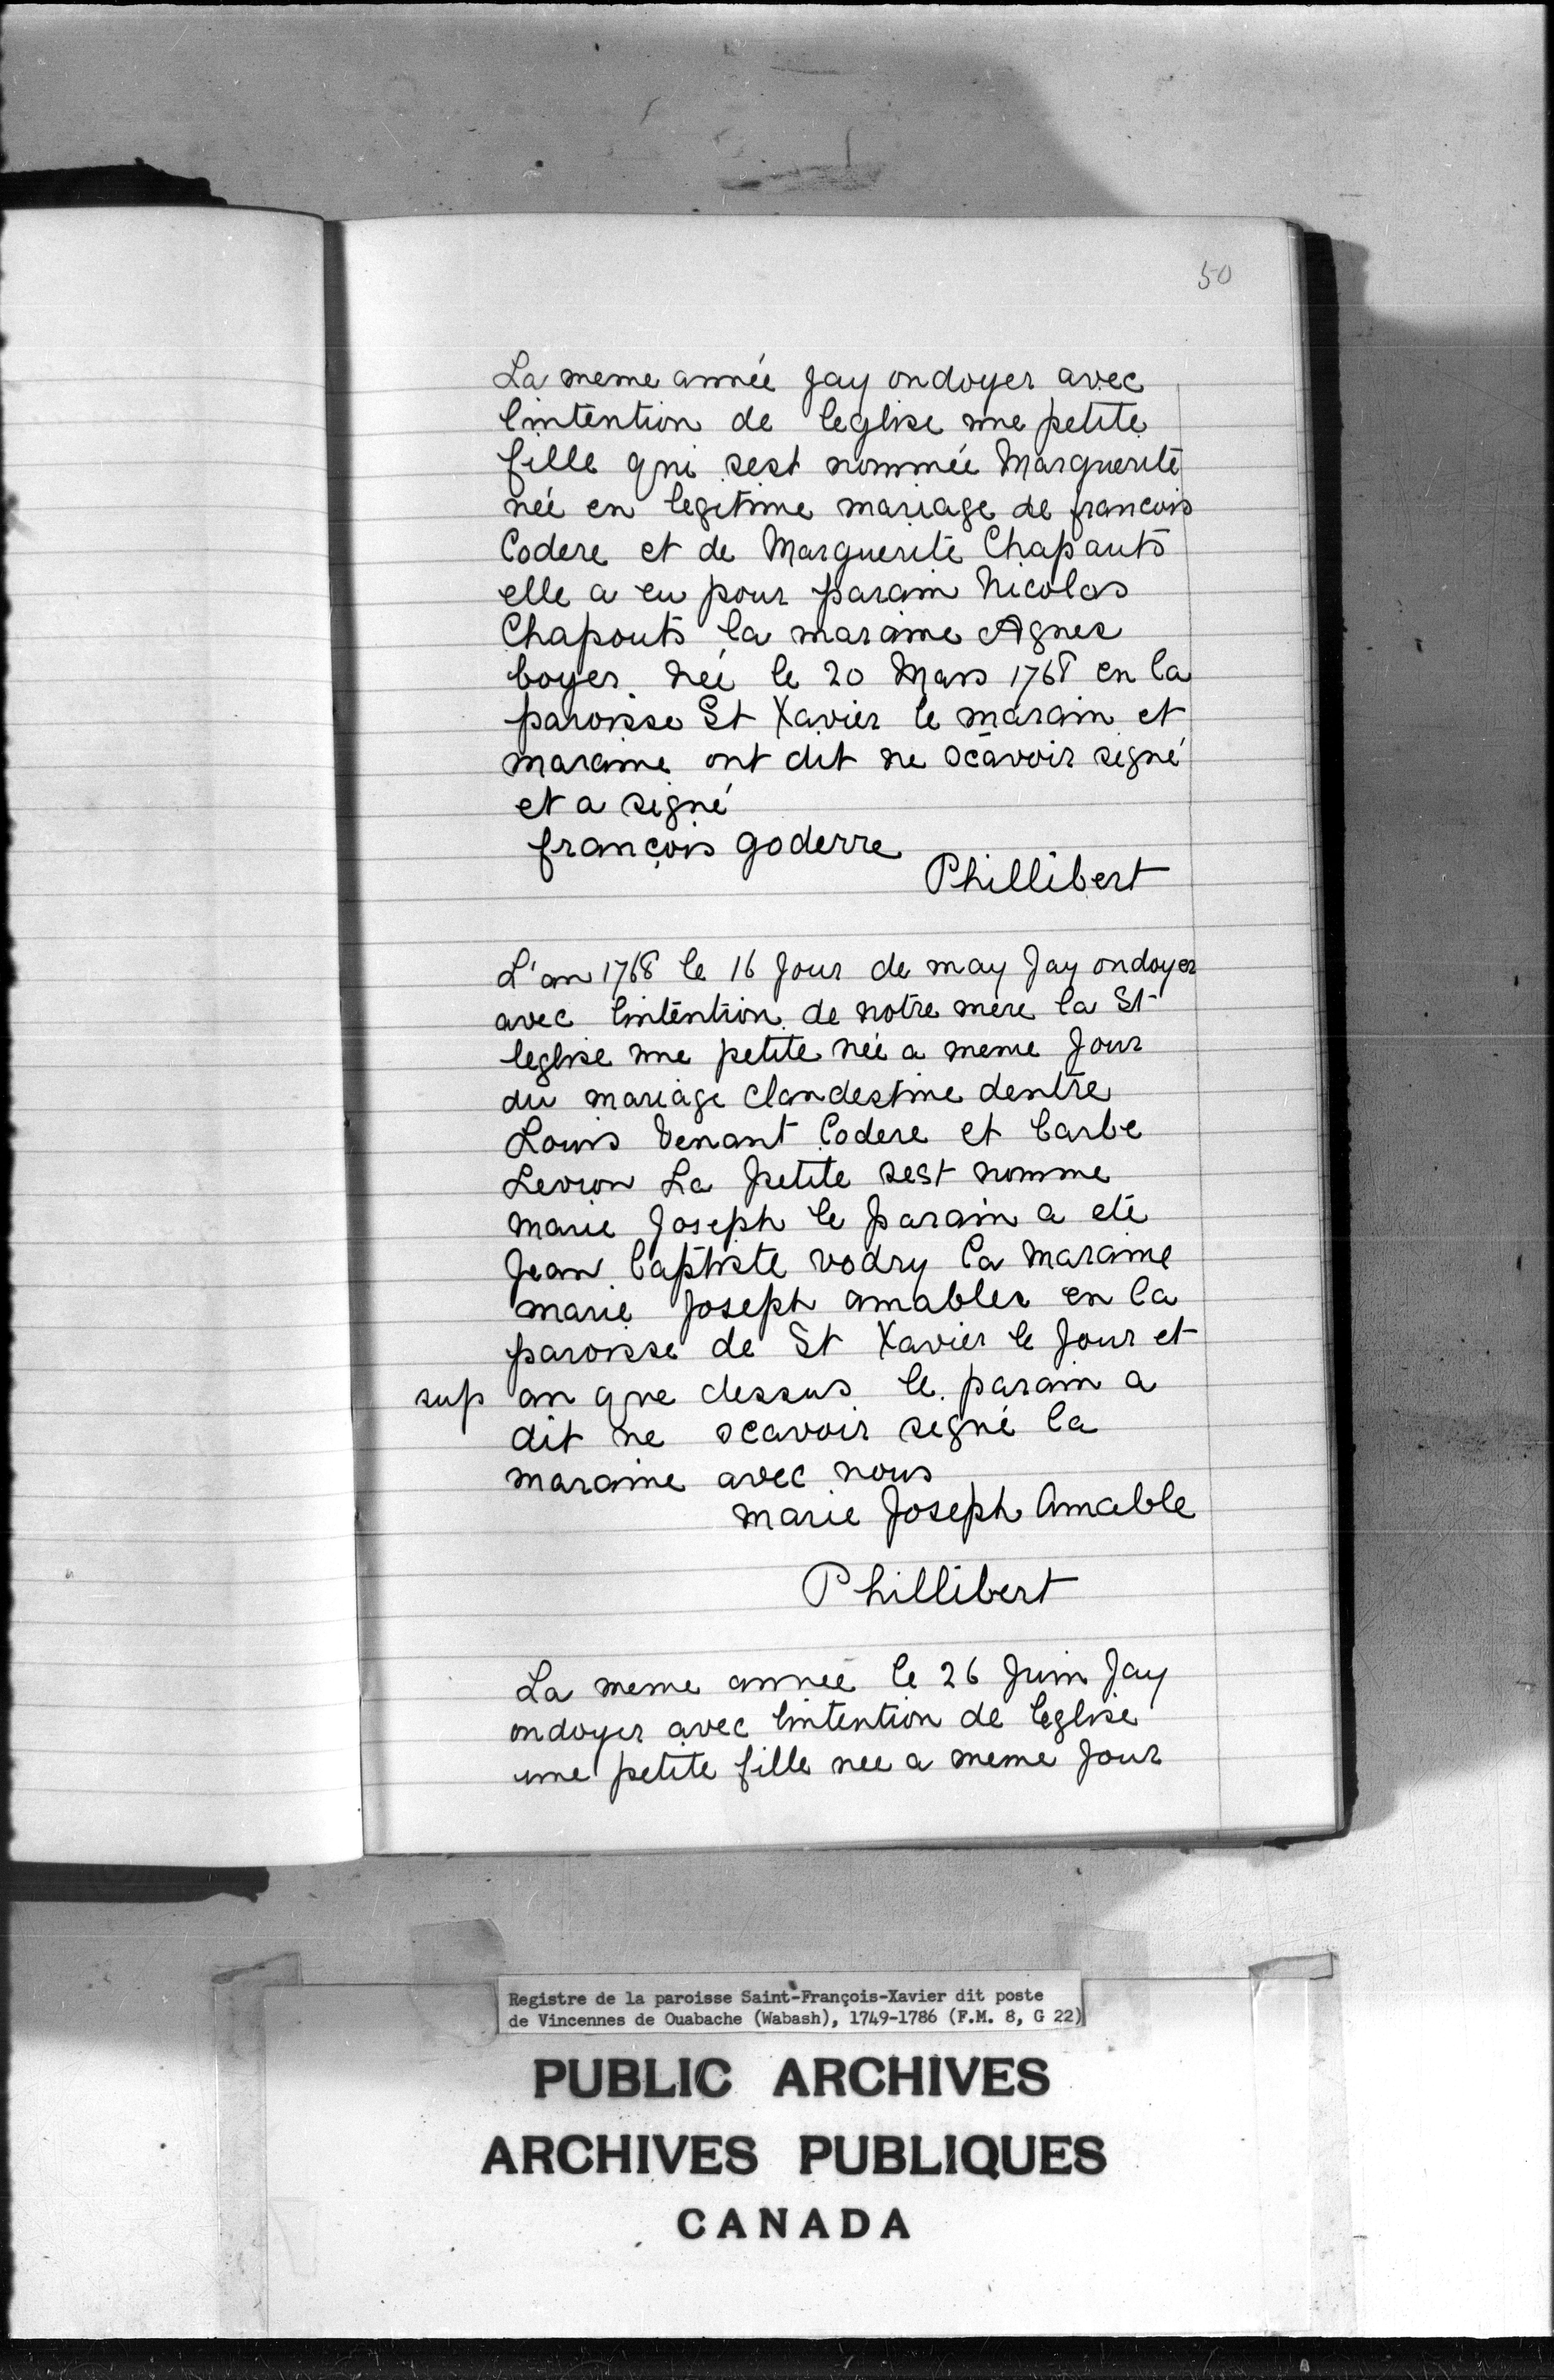 50
La meme année Jay ondoyer avec
lintention de leglise une petite
fille qui sest nommée Marguerite
née en legitime mariage de francois
Codere et de Marguerite Chapauts
elle a eu pour parain Nicolas
Chapouts la maraine Agnes
boyer née le 20 Mars 1768 en la
paroisse St Xavier le marain et
maraine ont dit ne scavoir signé
et a signé
françois goderre
Phillibert
L'an 1768 le 16 Jour de may Jay ondoyer
avec lintention de notre mere la St
leglise une petite née a meme Jour
du mariage clandestine dentre
Louis Venant Codere et barbe
Levron La petite sest nomme
marie Joseph le parain a eté
Jean baptiste vodry la maraine
marie Joseph amabler en la
paroisse de St Xavier le Jour et
sup an que dessus le parain a
dit ne scavoir signé la
maraine avec nous
marie Joseph Amable
Phillibert
La meme année le 26 Juin Jay
ondoyer avec lintention de leglise
une petite fille nee a meme Jour
Registre de la paroisse Saint-François-Xavier dit poste
de Vincennes de Ouabache (Wabash), 1749-1786 (F.M. 8, G 22)
PUBLIC ARCHIVES
ARCHIVES PUBLIQUES
CANADA